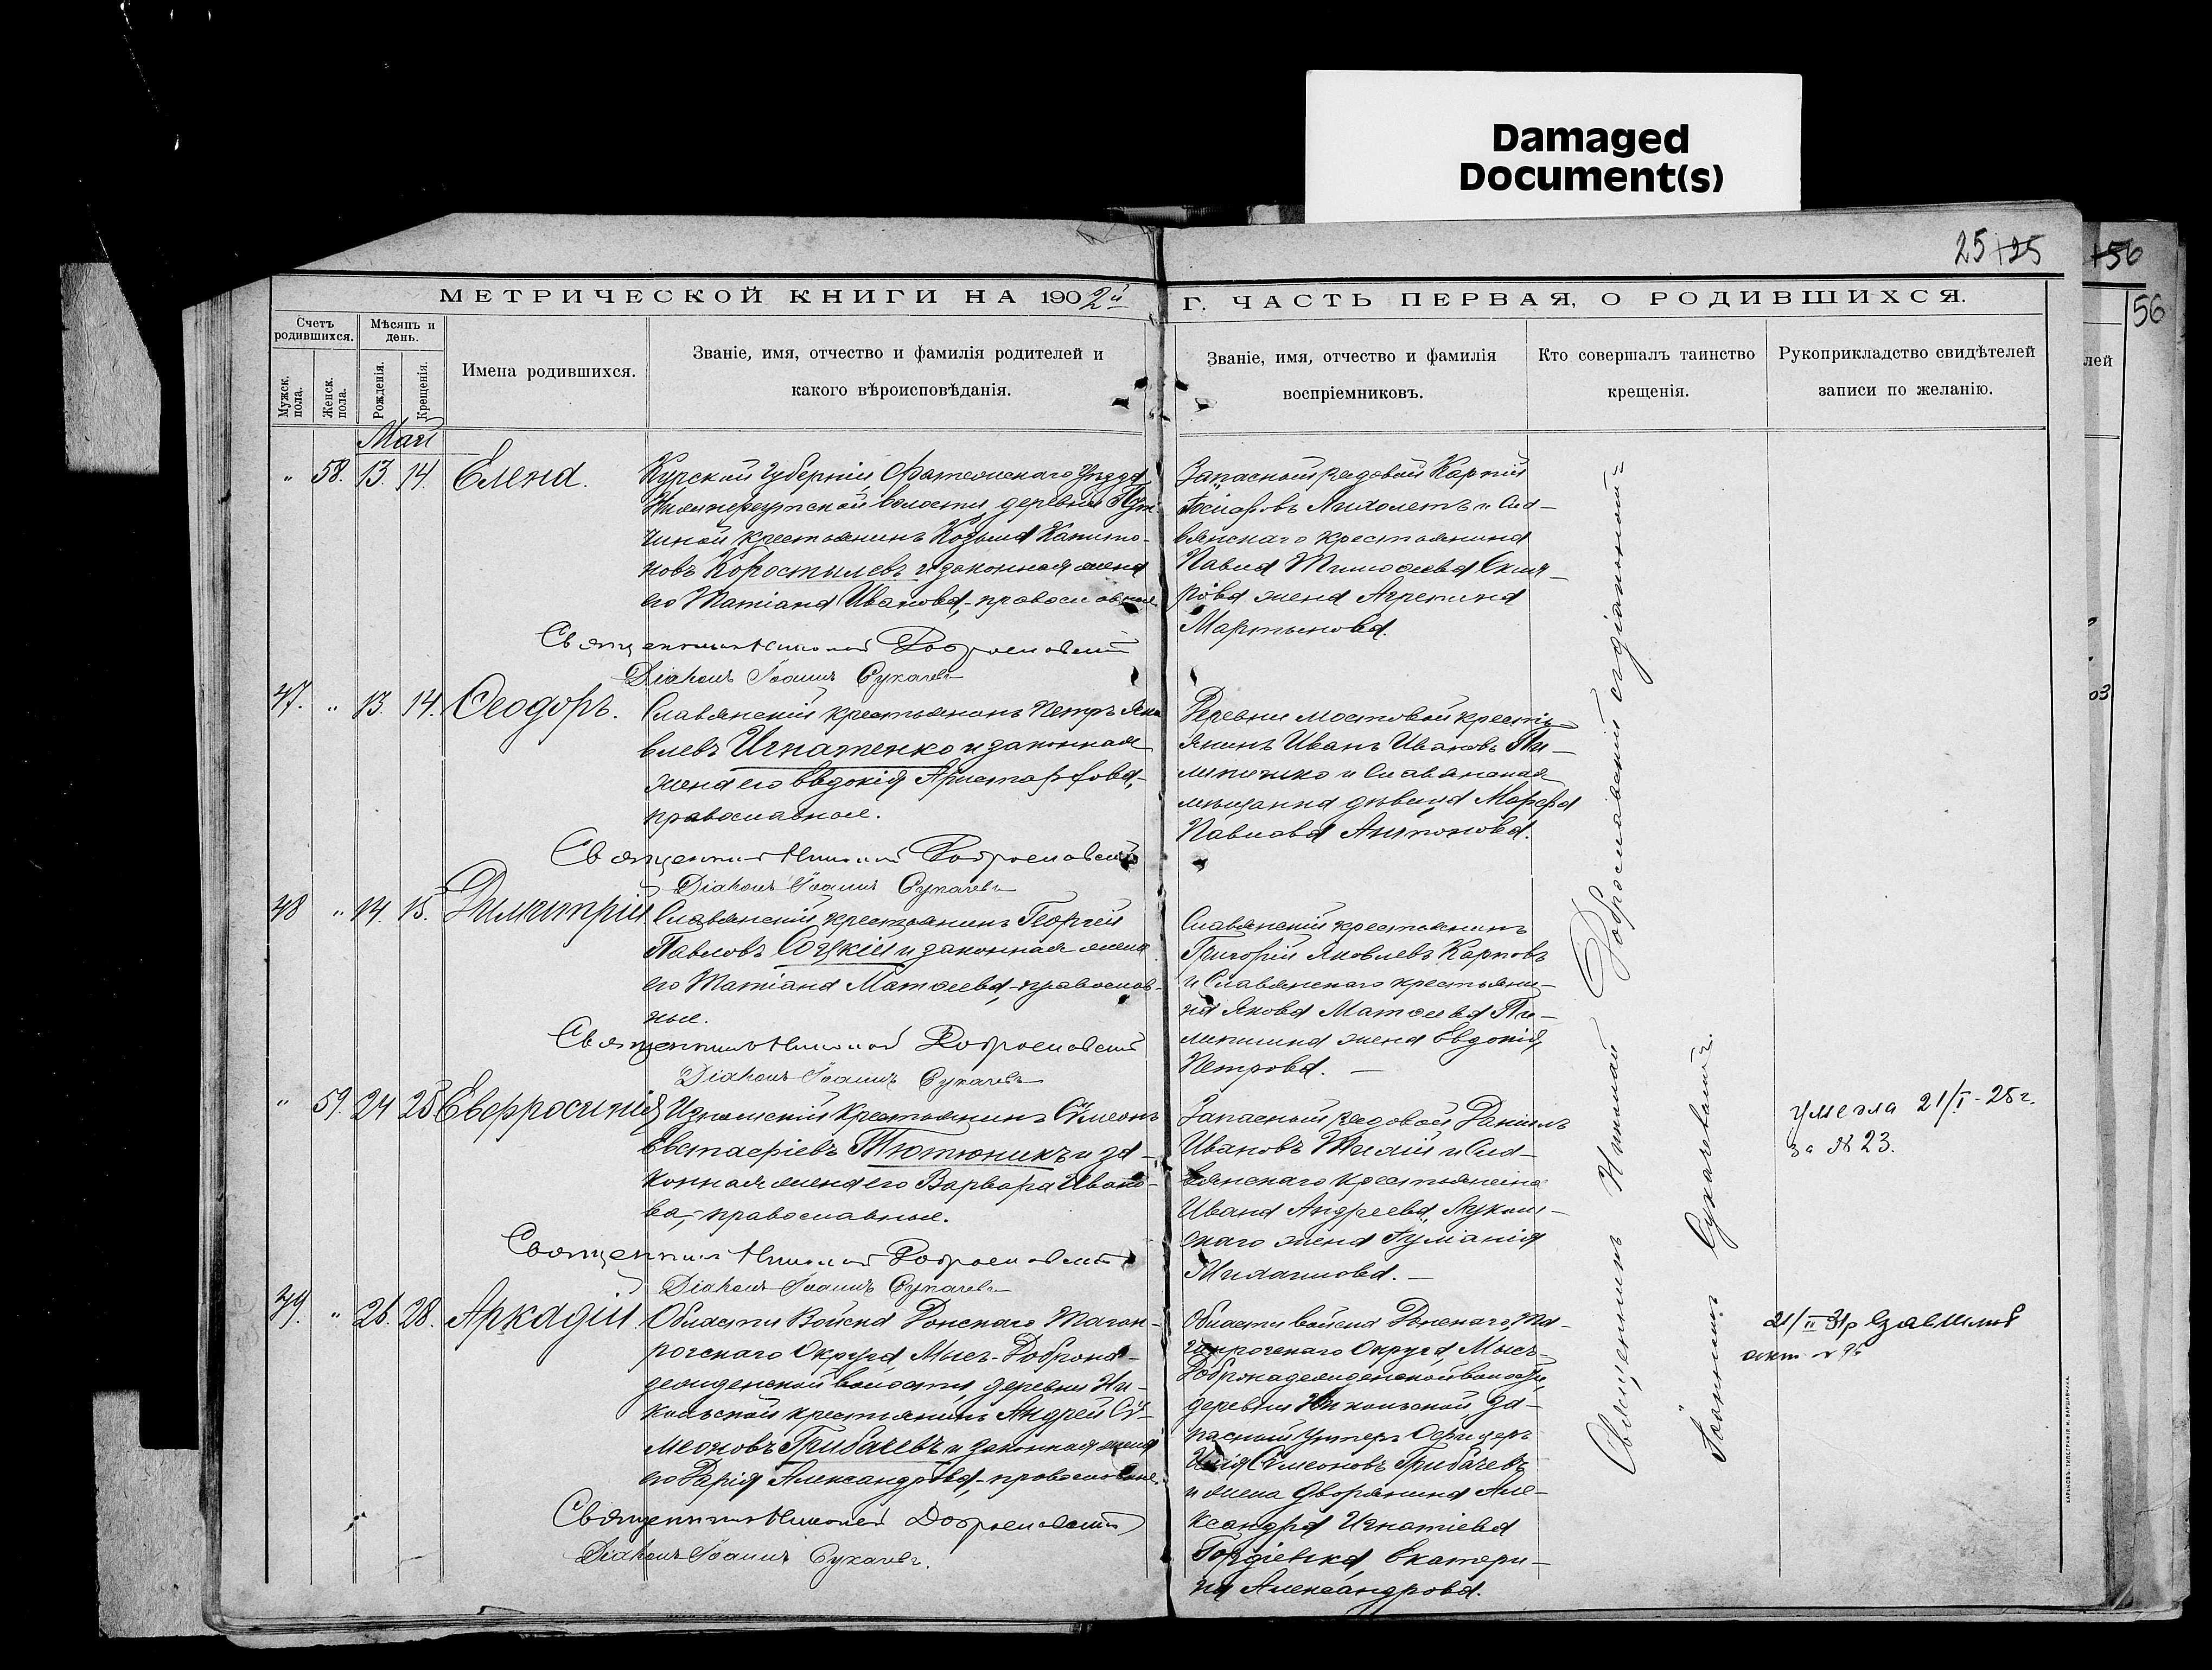 Damaged
Document(s)
25 125
156
56
МЕТРИЧЕСКОЙ КНИГИ НА 1902й Г. ЧАСТЬ ПЕРВАЯ, О РОДИВШИХСЯ.
Счетъ родившихся.
Мѣсяцъ и день.
Мужск. пола.
Женск. пола.
Рожденія.
Крещенія.
Имена родившихся.
Званіе, имя, отчество и фамилія родителей и
какого вѣроисповѣданія.
Званіе, имя, отчество и фамилія
воспріемниковъ.
Кто совершалъ таинство
крещенія.
Рукоприкладство свидѣтелей
записи по желанію.
лей
03
Май
" 58. 13. 14. Елена.
Курской губерніи, Фатежскаго Уѣзда
волости, деревни
чиной крестьянинъ Козьма Капито-
новъ Коростылевъ и законная жена
его Татіана Иванова, православные
Священникъ Николай Доброславскій
Діаконъ Іоаннъ Сукачевъ
Запасный рядовой Карпъ
и Сла-
вянскаго крестьянина
Павла Тимоѳеева Скля-
рова жена Агрепина
Мартынова.
47. " 13. 14. Ѳеодоръ.
Славянскій крестьянинъ Петръ Яко
влевъ Игнатенко и законная
жена его Евдокія Аристархова,
православные.
Священникъ Николай Доброславскій
Діаконъ Іоаннъ Сукачевъ
Деревни Мостовой кресть
янинъ Иванъ Ивановъ Пи-
липенко и Славянская
мѣщанка дѣвица Марфа
Павлова Антонова.
48 " 14. 15. Димитрій
Славянскій крестьянинъ Георгій
Павловъ Соцкій и законная жена
его Татіана Матѳеева, православ-
ные.
Священникъ Николай Доброславскій
Діаконъ Іоаннъ Сукачевъ
Славянскій крестьянинъ
Григорій Яковлевъ Карповъ
и Славянскаго крестьяни-
на Якова Матѳеева Пи-
липенка жена Евдокія
Петрова. —
" 59. 24 25 Евфросинія
Изюмскій крестьянинъ Сѵмеонъ
Евстафіевъ Тютюникъ и за-
конная жена его Варвара Ивано-
ва, православные.
Священникъ Николай Доброславскій
Діаконъ Іоаннъ Сукачевъ
Запасный рядовой Даніилъ
Ивановъ и Сла-
вянскаго крестьянина
Ивана Андреева
скаго жена Іуліанія
Михаилова. —
умерла 21/I - 25 г.
за № 23.
49. " 26. 28. Аркадій.
Области Войска Донскаго Таган-
рогскаго Округа, Мысъ-Доброна-
деждинской волости, деревни Ни-
кольской крестьянинъ Андрей Сѵ-
меоновъ Грибачевъ и законная жена
его Дарія Александрова, православные.
Священникъ Николай Доброславскій
Діаконъ Іоаннъ Сукачевъ.
Области войска Донскаго, Та-
ганрогскаго Округа, Мысъ-
Добронадеждинской волости,
деревни Никольской за-
пасный Унтеръ Офицеръ
Илія Сѵмеоновъ Грибачевъ
и жена дворянина Але-
ксандра Игнатіева
Гордіевска, Екатери-
на Александрова.
21/II 31р
акт №
Священникъ Николай Доброславскій
Іоаннъ Сукачевъ.